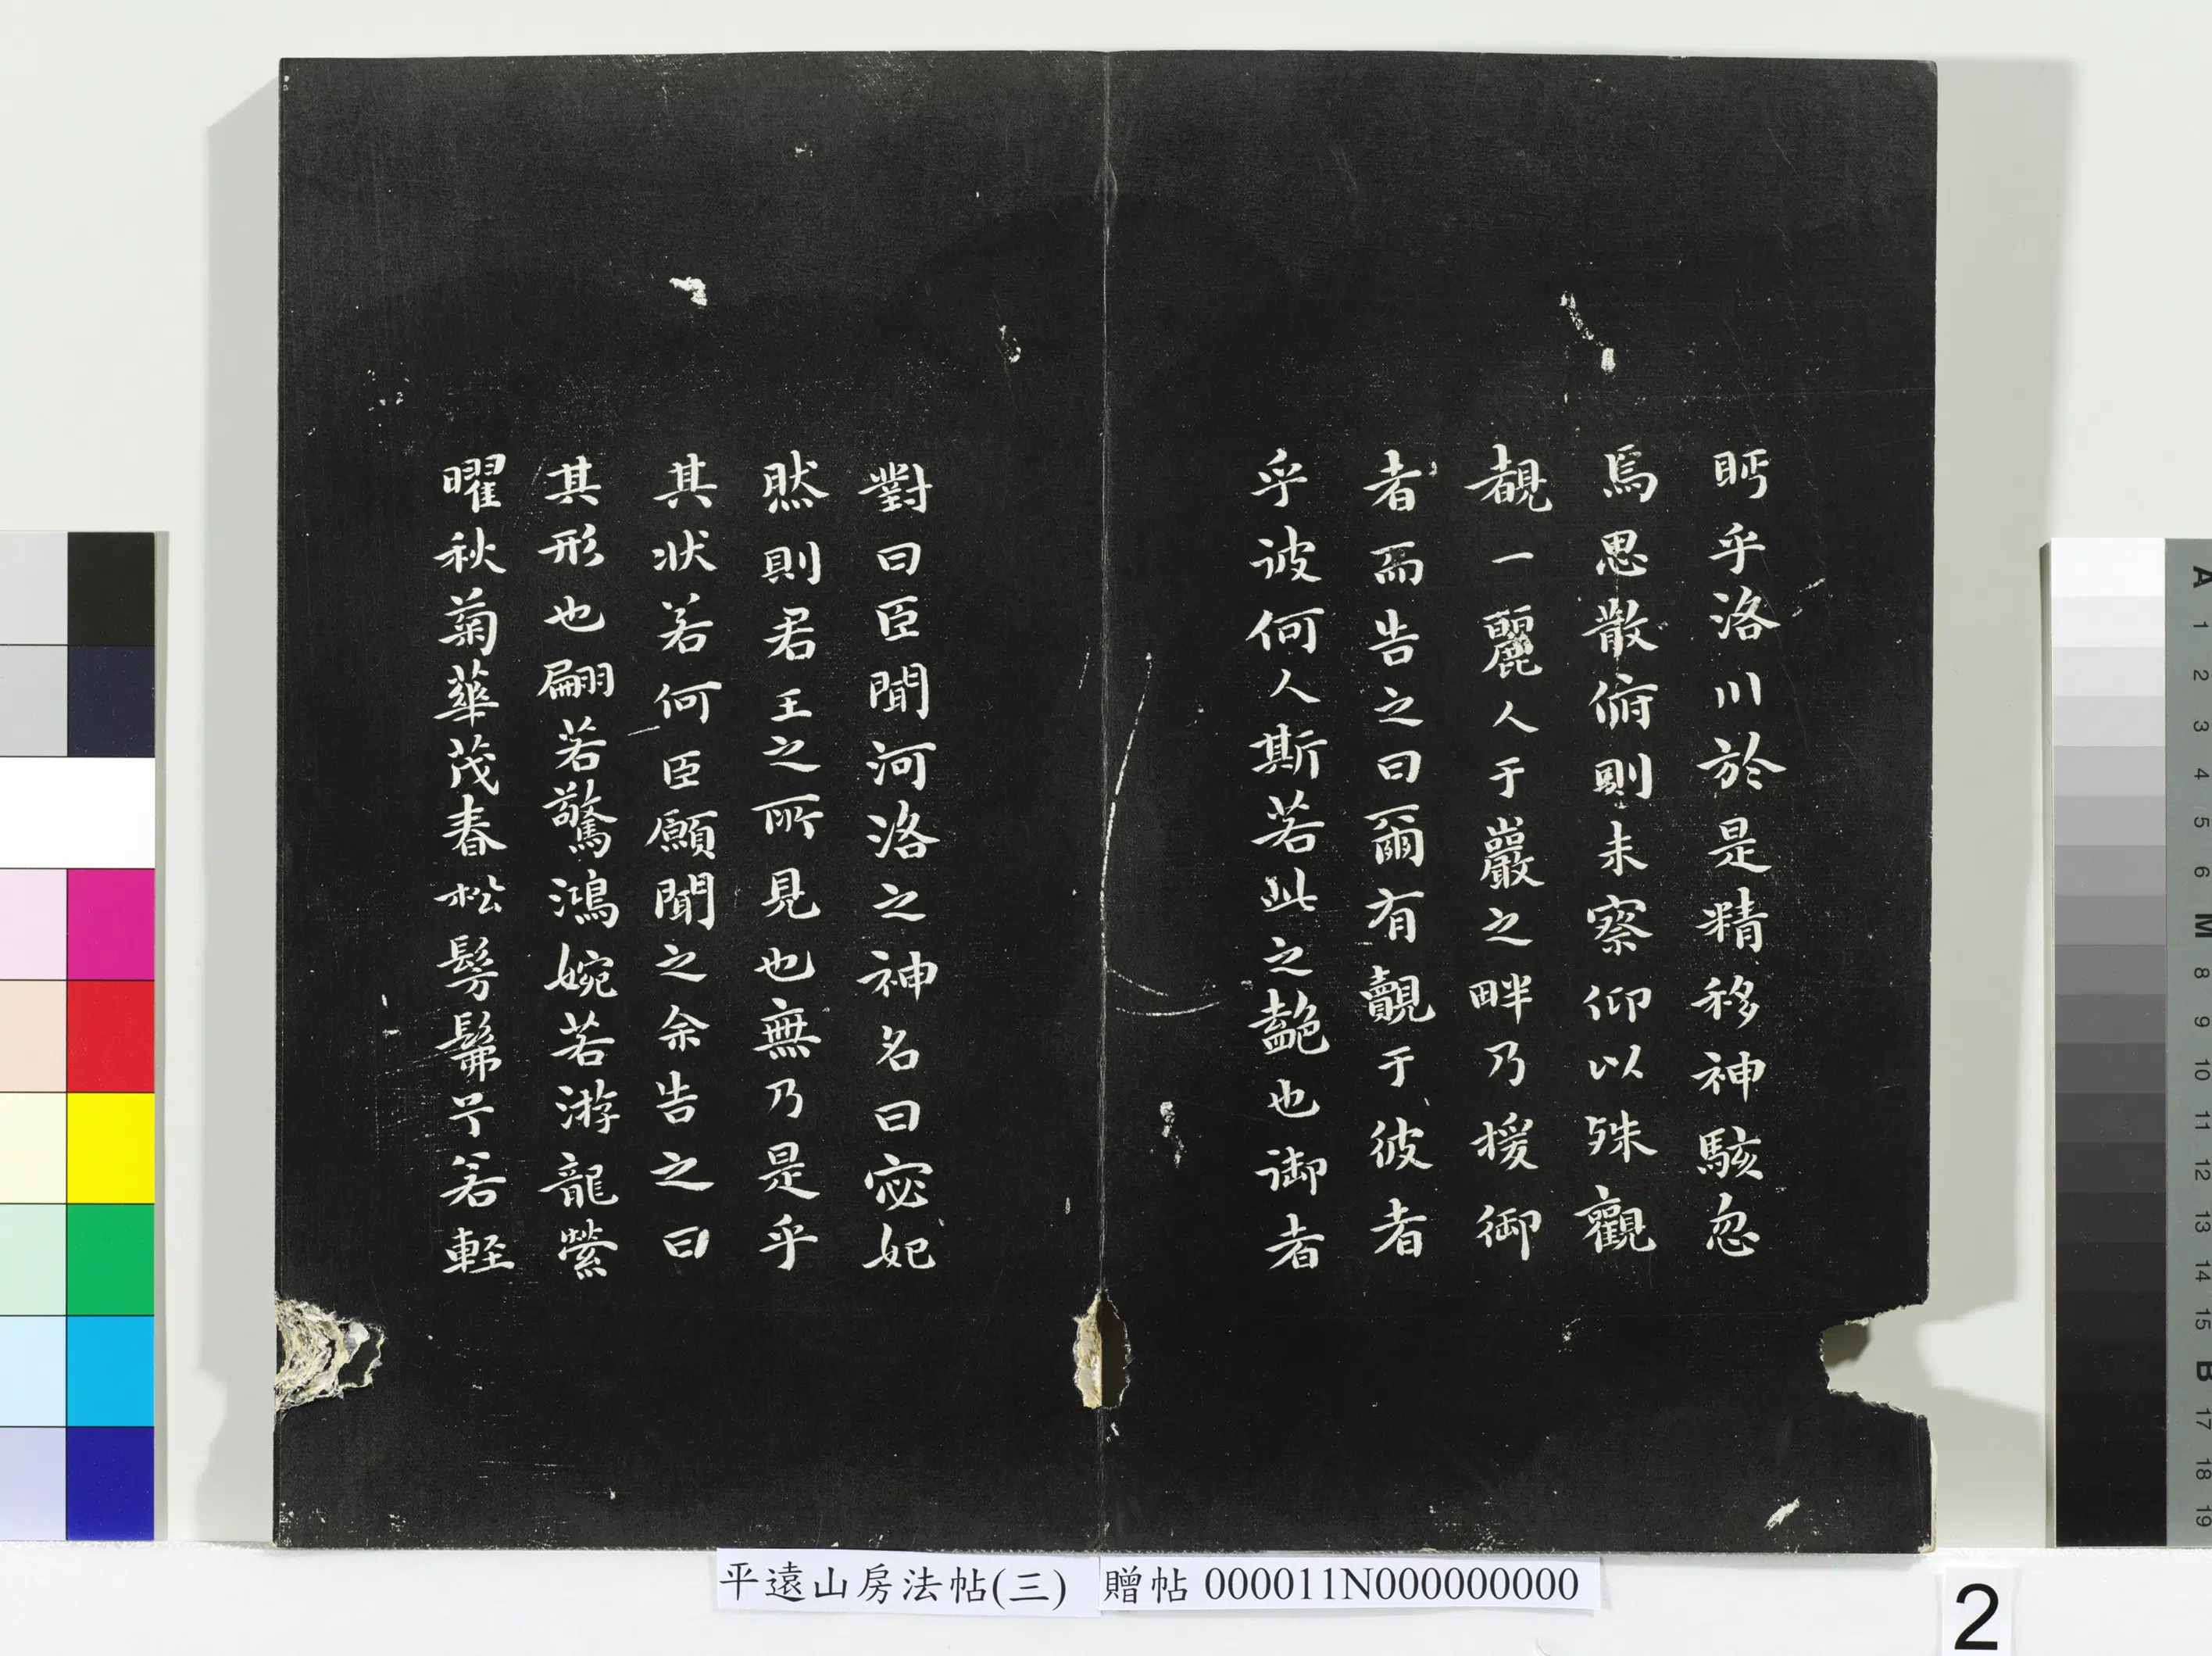 眄乎洛川於是精移神駭忽
焉思散俯則未察仰以殊觀
覩一麗人于巖之畔乃援御
者而告之曰爾有覿于彼者
乎彼何人斯若此之艷也御者
對曰臣聞河洛之神名曰宓妃
然則君王之所見也無乃是乎
其狀若何臣願聞之余告之曰
其形也翩若驚鴻婉若游龍榮
曜秋菊華茂春松髣髴兮若輕
平遠山房法帖(三) 贈帖 000011N000000000
2
A
1
2
3
4
5
6
M
8
9
10
11
12
13
14
15
B
17
18
19